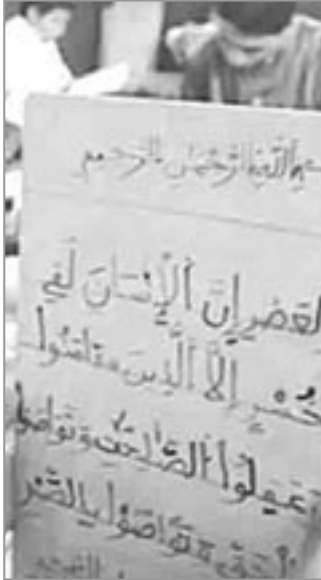 الله الرحمن الرحيم
لعصر إن الإنسان لفي
خسر إلا الذين ءامنوا
عملوا الصالحات وتواصوا
وتواصوا بالصبر